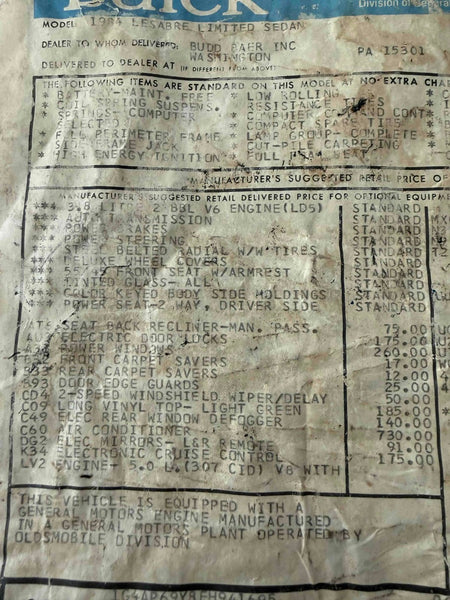 BUICK
Division of General
MODEL: 1984 LESABRE LIMITED SEDAN
DEALER TO WHOM DELIVERED: BUDD BAER INC PA 15301
WASHINGTON
DELIVERED TO DEALER AT (IF DIFFERENT FROM ABOVE)
THE FOLLOWING ITEMS ARE STANDARD ON THIS MODEL AT NO EXTRA CHA
* BATTERY-MAINT. FREE * LOW ROLLING
* COIL SPRING SUSPENS. RESISTANCE TIRES
* SPRINGS-COMPUTER * COMPUTER COMMAND CONT
SELECTED * COMPACT SPARE TIRE
* FULL PERIMETER FRAME * LAMP GROUP- COMPLETE
* SIDE-FRAME JACK * CUT-PILE CARPETING
* HIGH ENERGY IGNITION * FULL SEAT
MANUFACTURER'S SUGGESTED RETAIL PRICE OF
MANUFACTURER'S SUGGESTED RETAIL DELIVERED PRICE FOR OPTIONAL EQUIPME
*** 3.8 LITER 2-BBL V6 ENGINE(LD5) STANDARD
*** AUTO TRANSMISSION STANDARD
*** POWER BRAKES STANDARD
*** POWER STEERING STANDARD
*** BELTED RADIAL W/W TIRES STANDARD
*** DELUXE WHEEL COVERS STANDARD
*** 55/45 FRONT SEAT W/ARMREST STANDARD
*** TINTED GLASS- ALL STANDARD
*** COLOR KEYED BODY SIDE MOLDINGS STANDARD
*** POWER SEAT-2 WAY, DRIVER SIDE STANDARD
AT6 SEAT BACK RECLINER-MAN. PASS. 75.00
ELECTRIC DOOR LOCKS 175.00
POWER WINDOWS 260.00
FRONT CARPET SAVERS 17.00
REAR CARPET SAVERS 12.00
B93 DOOR EDGE GUARDS 25.00
CD4 2-SPEED WINDSHIELD WIPER/DELAY 50.00
C09 LONG VINYL TOP- LIGHT GREEN 185.00
C49 ELEC REAR WINDOW DEFOGGER 140.00
C60 AIR CONDITIONER 730.00
DG2 ELEC MIRRORS- L&R REMOTE 91.00
K34 ELECTRONIC CRUISE CONTROL 175.00
LV2 ENGINE- 5.0 L.(307 CID) V8 WITH
THIS VEHICLE IS EQUIPPED WITH A
GENERAL MOTORS ENGINE MANUFACTURED
IN A GENERAL MOTORS PLANT OPERATED BY
OLDSMOBILE DIVISION